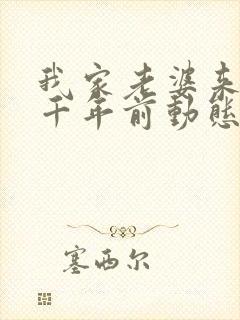 我家老婆来
千年前動態
塞西尔